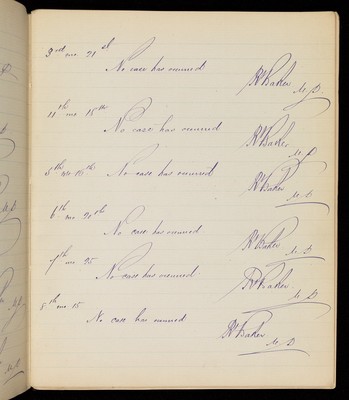 3rd mo. 21st
No case has occurred
R Baker M.D.
4th mo. 18th
No case has occurred
R Baker M.D.
5th mo 16th No case has occurred
R Baker M.D.
6th mo 20th
No case has occurred
R Baker M.D.
7th mo 25
No case has occurred.
R Baker M.D.
8th mo 15
No case has occurred
R Baker M.D.